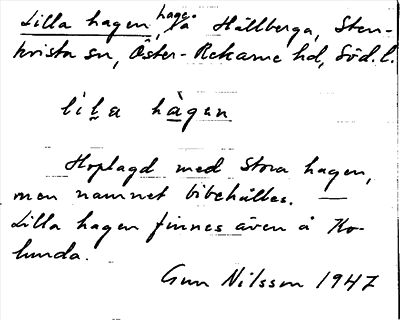 Lilla hagen, hage på Hällberga, Sten-
kvista sn, Öster-Rekarne hd, Söd. l.
lìḷa hàgen
Hoplagd med Stora hagen,
men namnet bibehålles. —
Lilla hagen finnes även å Ho-
lunda.
Gun Nilsson 1947